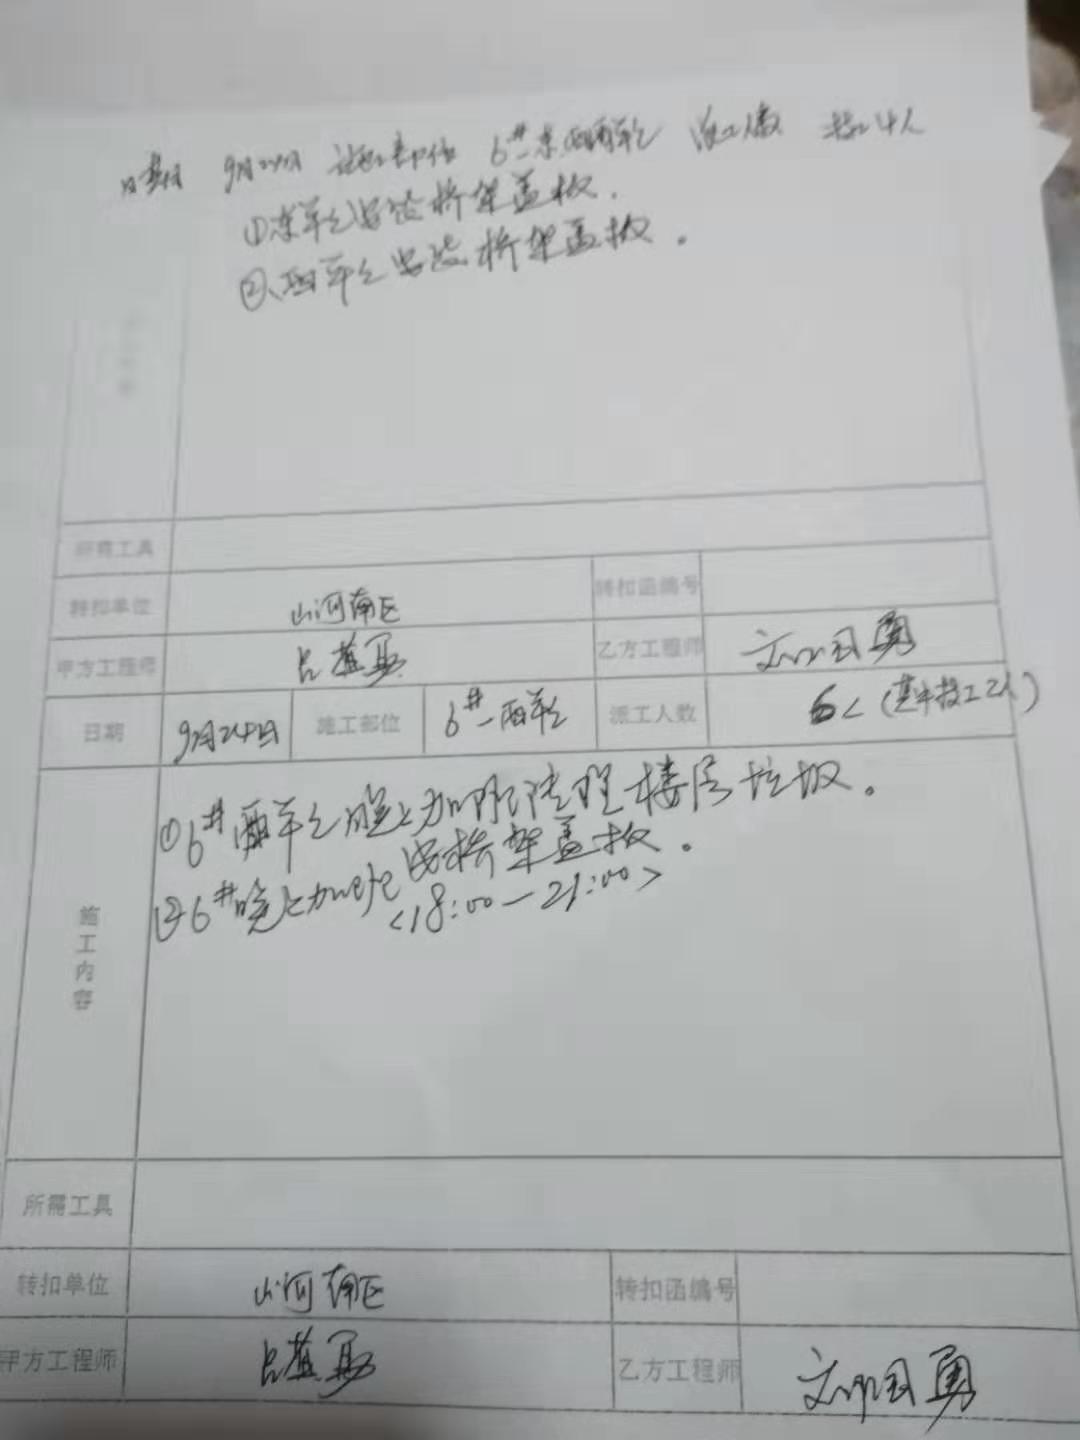 日期 9月24日 施工部位 6#东西单元 派工人数 技工4人
①东单元安装桥架盖板.
②西单元安装桥架盖板.
所需工具
转扣单位 山河南区 转扣函编号
甲方工程师 乙方工程师
日期 9月24日 施工部位 6#西单元 派工人数 6人(其中技工2人)
施工内容
①6#西单元晚上加班清理楼层垃圾。
②6#晚上加班安桥架盖板.
<18:00—21:00>
所需工具
转扣单位 山河南区 转扣函编号
甲方工程师 乙方工程师